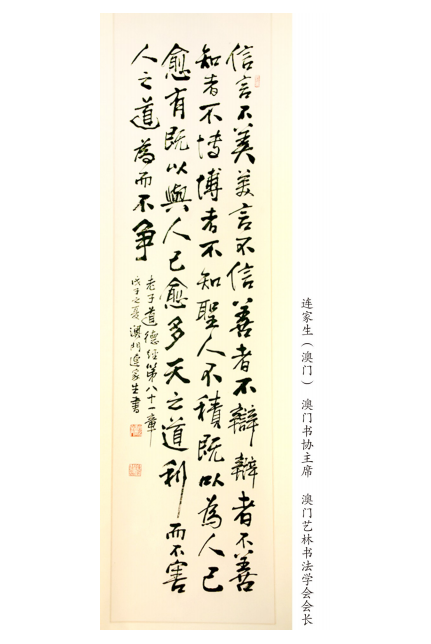 信言不美美言不信善者不辯辯者不善
知者不博博者不知聖人不積既以為人己
愈有既以與人己愈多天之道利而不害
人之道為而不争
老子道德經第八十一章
戊子之夏澳門連家生書
连家生（澳门） 澳门书协主席 澳门艺林书法学会会长